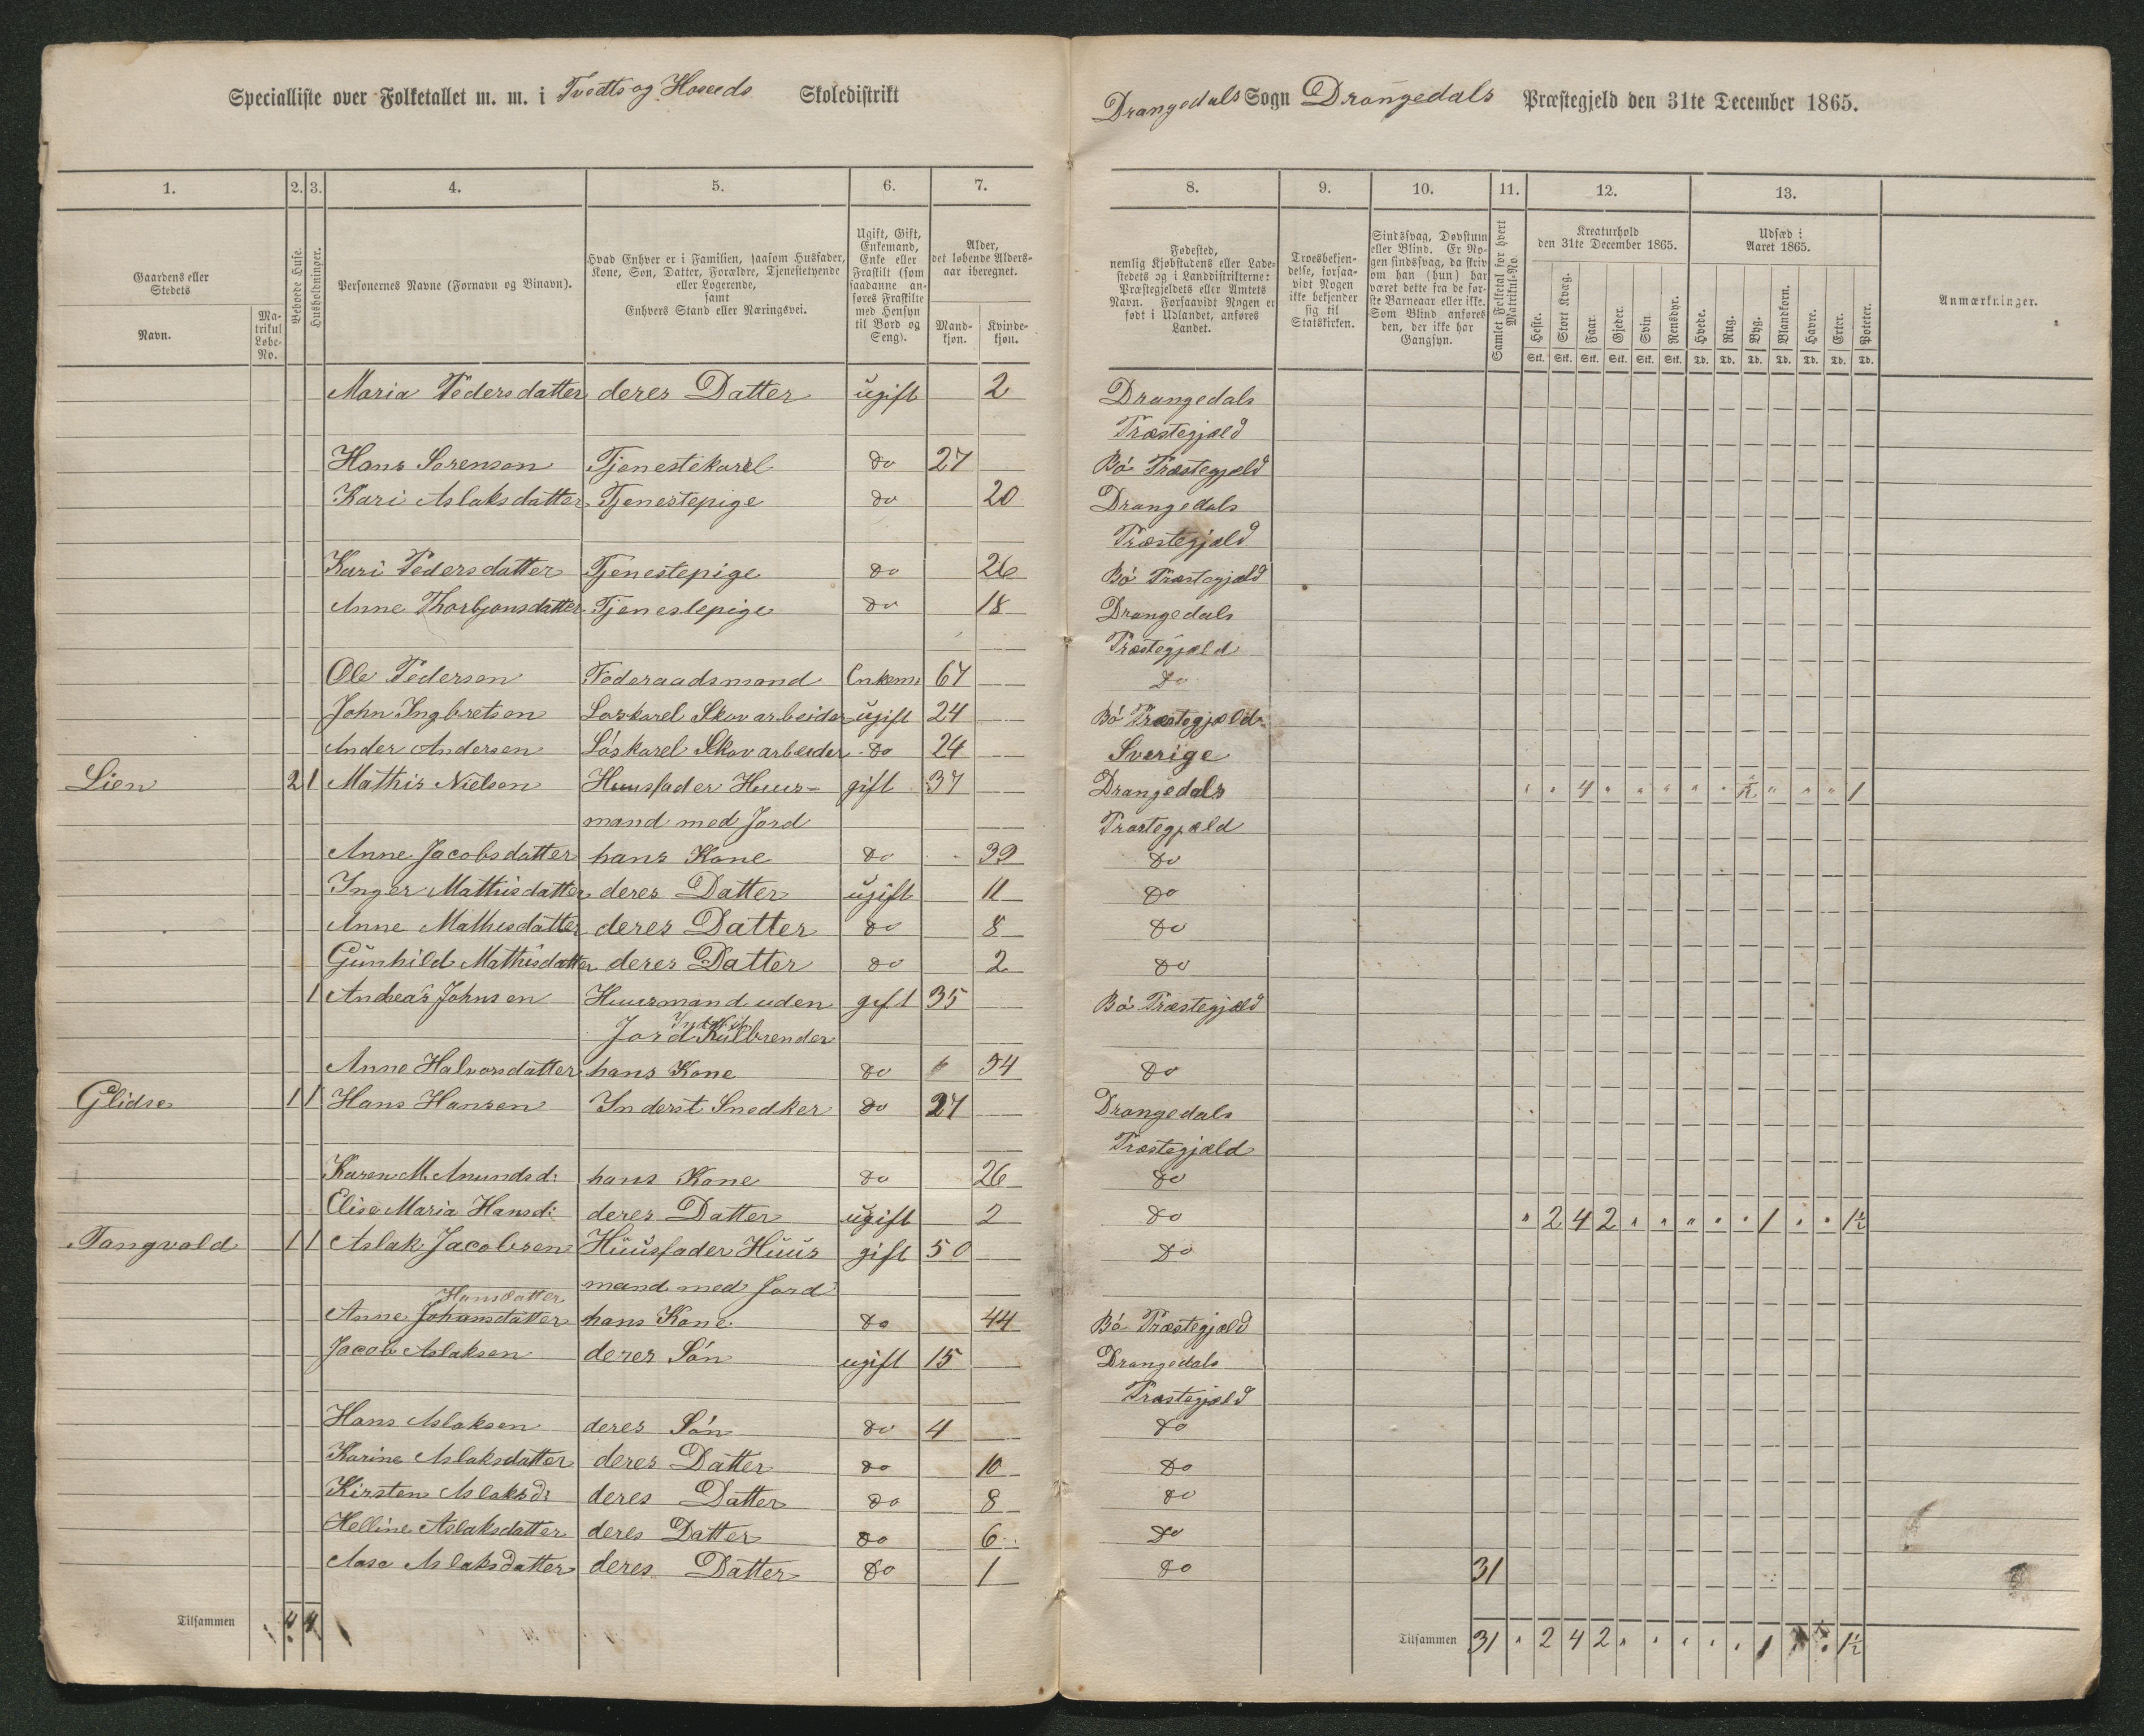 Specialliste over Folketallet m. m. i Tvedts og Hoseeds Skoledistrikt
Drangedals Sogn Drangedals Præstegjeld den 31te December 1865.
1. 2. 3. 4. 5. 6. 7. 8. 9. 10. 11. 12. 13.
Gaardens eller Stedets
Navn.
Matrikul Løbe-No.
Beboede Huse.
Husholdninger.
Personernes Navne (Fornavn og Binavn).
Hvad Enhver er i Familien, saasom Husfader, Kone, Søn, Datter, Forældre, Tjenestetyende eller Logerende, samt Enhvers Stand eller Næringsvei.
Ugift, Gift, Enkemand, Enke eller Fraskilt (som saadanne anføres Fraskilte med Hensyn til Bord og Seng).
Alder, det løbende Alders-aar iberegnet.
Mandkjøn. Kvindekjøn.
Fødested, nemlig Kjøbstadens eller Ladestedets og i Landdistrikterne: Præstegjeldets eller Amtets Navn. Forsaavidt Nogen er født i Udlandet, anføres Landet.
Troesbekjendelse, forsaavidt Nogen ikke bekjender sig til Statskirken.
Sindssvag, Døvstum eller Blind. Er Nogen sindssvag, da skriv om han (hun) har været dette fra de første Barneaar eller ikke. Som Blind anføres den, der ikke har Gangsyn.
Samlet Folketal for hvert Matrikul-No.
Kreaturhold den 31te December 1865.
Heste. Stort Kvæg. Faar. Gjeder. Svin. Rensdyr.
Stk. Stk. Stk. Stk. Stk. Stk.
Udsæd i Aaret 1865.
Hvede. Rug. Byg. Blandkorn. Havre. Erter. Poteter.
Td. Td. Td. Td. Td. Td. Td.
Anmærkninger.
Maria Pedersdatter deres Datter ugift 2 Drangedals
Præstegjæld
Hans Sørenson Tjenestekarel do 27 Bö Præstegjæld
Kari Aslaksdatter Tjenestepige do 20 Drangedals
Præstegjæld
Kari Pedersdatter Tjenestepige do 26 Bö Præstegjæld
Anne Thorbjonsdatter Tjenestepige do 18 Drangedals
Præstegjæld
Ole Pederson Føderaadsmand Enkem: 67 do
John Ingbretson Løskarel Skovarbeider ugift 24 Bö Præstegjæld
Ander Andersen Löskarel Skovarbeider do 24 Sverige
Lien 2 1 Mathis Nielson Huusfader Huus- gift 37 Drangedals " " 4 " " " " " " " " 1
mand med Jord Præstegjæld
Anne Jacobsdatter hans Kone do 39 do
Inger Mathisdatter deres Datter ugift 11 do
Anne Mathisdatter deres Datter do 8 do
Gunhild Mathisdatter deres Datter do 2 do
1 Andreas Johnsen Huusmand uden gift 35 Bö Præstegjæld
Jord Kulbrender
Anne Halvorsdatter hans Kone do 54 do
Glidse 1 1 Hans Hansen Inderst Snedker do 27 Drangedals
Præstegjæld
Karen M. Amundsd: hans Kone do 26 do
Elise Maria Hansd: deres Datter ugift 2 do " 2 4 2 " " " " " 1 " " 1½
Tangvald 1 1 Aslak Jacobsen Huusfader Huus gift 50 do
mand med Jord
Hansdatter
Anne Johansdatter hans Kone do 44 Bö Præstegjæld
Jacob Aslaksen deres Sön ugift 15 Drangedals
Præstegjæld
Hans Aslaksen deres Sön do 4 do
Karine Aslaksdatter deres Datter do 10 do
Kirsten Aslaksd: deres Datter do 8 do
Helline Aslaksdatter deres Datter do 6 do
Aase Aslaksdatter deres Datter do 1 do 31
Tilsammen 4 4
Tilsammen 31 " 2 4 2 " " " " " 1 " " 1½